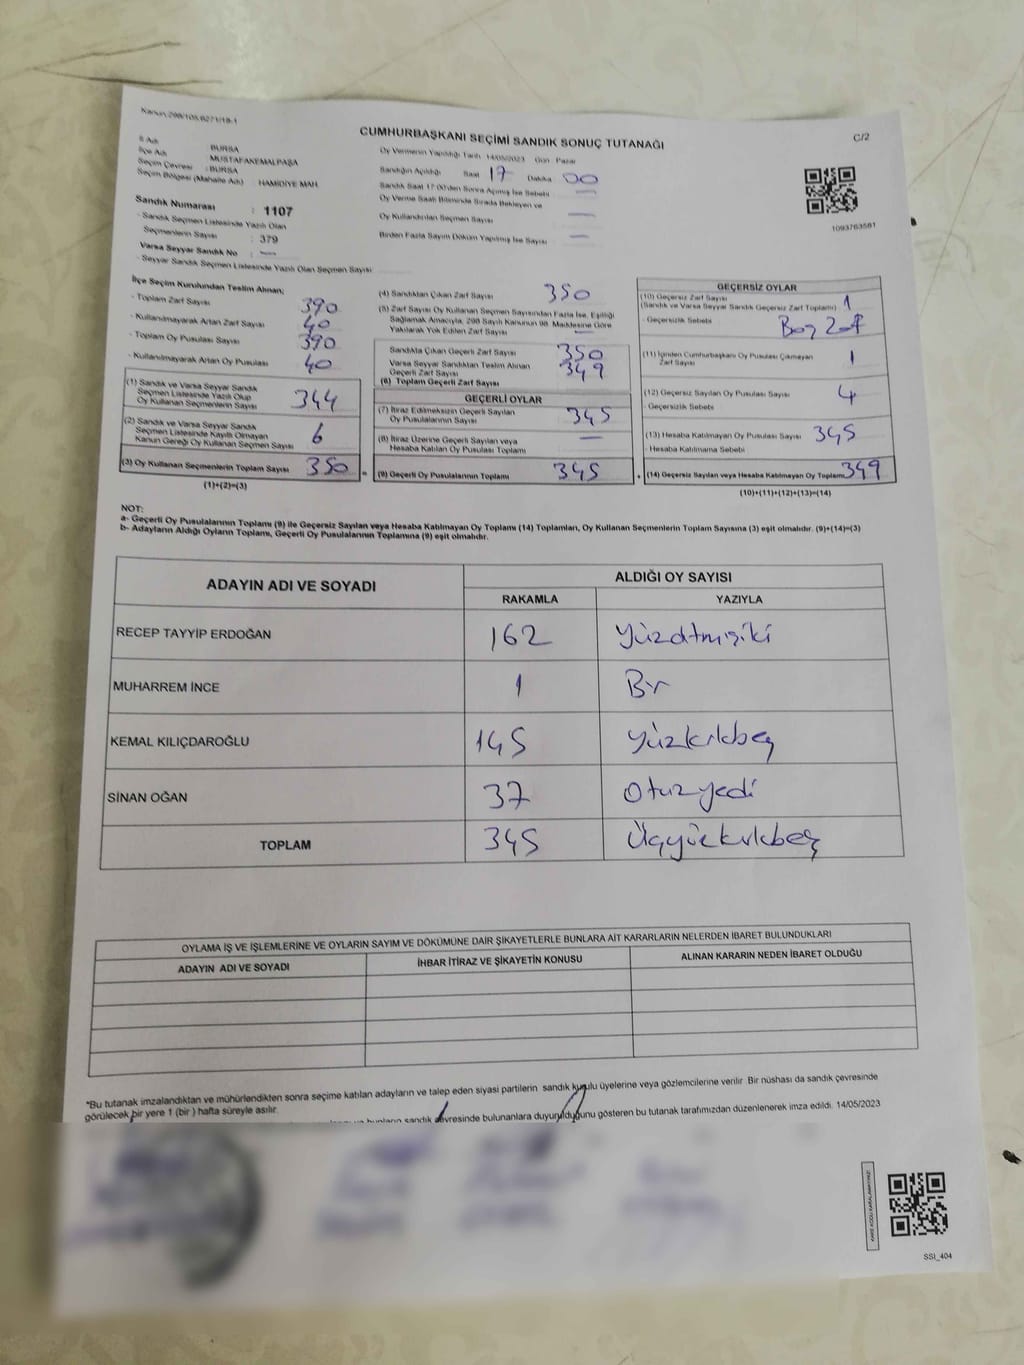 Kanun:298/105,6271/18-1
CUMHURBAŞKANI SEÇİMİ SANDIK SONUÇ TUTANAĞI
C/2
İl Adı : BURSA
İlçe Adı : MUSTAFAKEMALPAŞA
Seçim Çevresi : BURSA
Seçim Bölgesi (Mahalle Adı) : HAMİDİYE MAH.
Sandık Numarası : 1107
- Sandık Seçmen Listesinde Yazılı Olan
Seçmenlerin Sayısı : 379
Varsa Seyyar Sandık No : —
- Seyyar Sandık Seçmen Listesinde Yazılı Olan Seçmen Sayısı:
Oy Vermenin Yapıldığı Tarih 14/05/2023 Gün Pazar
Sandığın Açıldığı Saat 17 Dakika 00
Sandık Saat 17:00'den Sonra Açılmış İse Sebebi —
Oy Verme Saati Bitiminde Sırada Bekleyen ve
Oy Kullandırılan Seçmen Sayısı —
Birden Fazla Sayım Döküm Yapılmış İse Sayısı —
1093763581
İlçe Seçim Kurulundan Teslim Alınan;
- Toplam Zarf Sayısı 390
- Kullanılmayarak Artan Zarf Sayısı 40
- Toplam Oy Pusulası Sayısı 390
- Kullanılmayarak Artan Oy Pusulası 40
(1) Sandık ve Varsa Seyyar Sandık
Seçmen Listesinde Yazılı Olup
Oy Kullanan Seçmenlerin Sayısı 344
(2) Sandık ve Varsa Seyyar Sandık
Seçmen Listesinde Kayıtlı Olmayan
Kanun Gereği Oy Kullanan Seçmen Sayısı 6
(3) Oy Kullanan Seçmenlerin Toplam Sayısı 350
(1)+(2)=(3)
(4) Sandıktan Çıkan Zarf Sayısı 350
(5) Zarf Sayısı Oy Kullanan Seçmen Sayısından Fazla İse, Eşitliği
Sağlamak Amacıyla, 298 Sayılı Kanunun 98. Maddesine Göre
Yakılarak Yok Edilen Zarf Sayısı —
Sandıkta Çıkan Geçerli Zarf Sayısı 350
Varsa Seyyar Sandıktan Teslim Alınan
Geçerli Zarf Sayısı 349
(6) Toplam Geçerli Zarf Sayısı
GEÇERLİ OYLAR
(7) İtiraz Edilmeksizin Geçerli Sayılan
Oy Pusulalarının Sayısı 345
(8) İtiraz Üzerine Geçerli Sayılan veya
Hesaba Katılan Oy Pusulaları Toplamı —
(9) Geçerli Oy Pusulalarının Toplamı 345
GEÇERSİZ OYLAR
(10) Geçersiz Zarf Sayısı
(Sandık ve Varsa Seyyar Sandık Geçersiz Zarf Toplamı) 1
- Geçersizlik Sebebi
(11) İçinden Cumhurbaşkanı Oy Pusulası Çıkmayan
Zarf Sayısı 1
(12) Geçersiz Sayılan Oy Pusulası Sayısı 4
- Geçersizlik Sebebi
(13) Hesaba Katılmayan Oy Pusulası Sayısı 345
- Hesaba Katılmama Sebebi
(14) Geçersiz Sayılan veya Hesaba Katılmayan Oy Toplamı 349
(10)+(11)+(12)+(13)=(14)
NOT:
a- Geçerli Oy Pusulalarının Toplamı (9) ile Geçersiz Sayılan veya Hesaba Katılmayan Oy Toplamı (14) Toplamları, Oy Kullanan Seçmenlerin Toplam Sayısına (3) eşit olmalıdır. (9)+(14)=(3)
b- Adayların Aldığı Oyların Toplamı, Geçerli Oy Pusulalarının Toplamına (9) eşit olmalıdır.
ADAYIN ADI VE SOYADI
ALDIĞI OY SAYISI
RAKAMLA YAZIYLA
RECEP TAYYİP ERDOĞAN 162 Yüzatmışiki
MUHARREM İNCE 1 Bir
KEMAL KILIÇDAROĞLU 145 Yüzkırkbeş
SİNAN OĞAN 37 Otuzyedi
TOPLAM 345 Üçyüzkırkbeş
OYLAMA İŞ VE İŞLEMLERİNE VE OYLARIN SAYIM VE DÖKÜMÜNE DAİR ŞİKAYETLERLE BUNLARA AİT KARARLARIN NELERDEN İBARET BULUNDUKLARI
ADAYIN ADI VE SOYADI İHBAR İTİRAZ VE ŞİKAYETİN KONUSU ALINAN KARARIN NEDEN İBARET OLDUĞU
*Bu tutanak imzalandıktan ve mühürlendikten sonra seçime katılan adayların ve talep eden siyasi partilerin sandık kurulu üyelerine veya gözlemcilerine verilir. Bir nüshası da sandık çevresinde
görülecek bir yere 1 (bir) hafta süreyle asılır.
bunların sandık çevresinde bulunanlara duyurulduğunu gösteren bu tutanak tarafımızdan düzenlenerek imza edildi. 14/05/2023
SSI_404